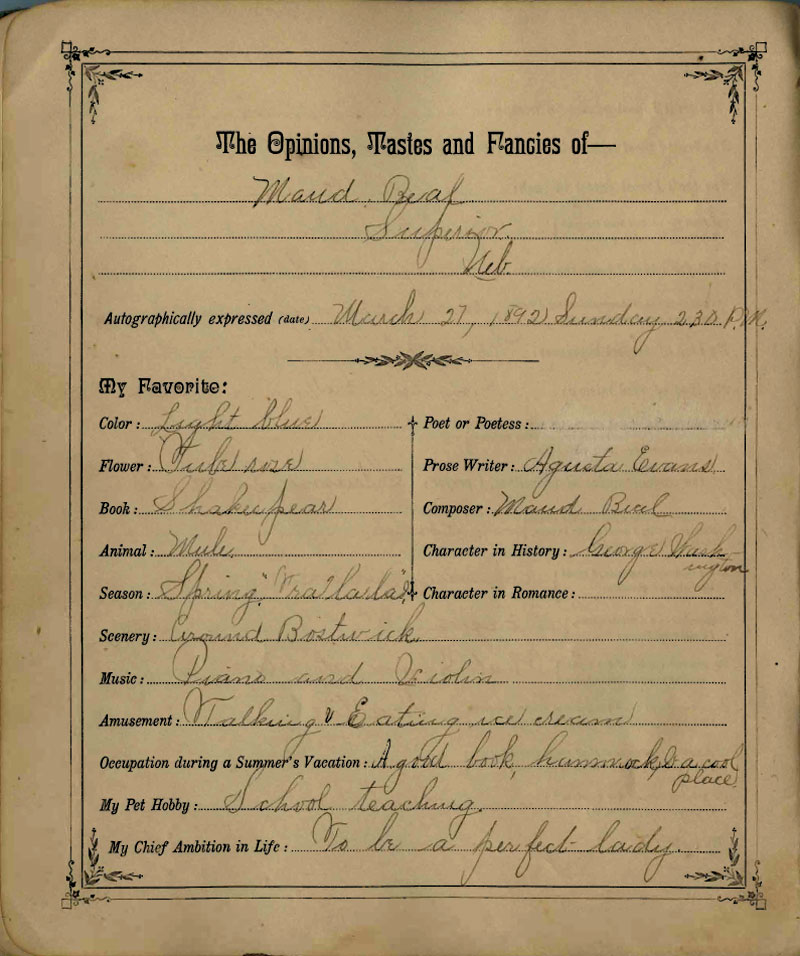 The Opinions, Tastes and Fancies of—
Maud Beal
Superior.
Neb.
Autographically expressed (date) March 27, 1892 Sunday 2.30 P.M.
My Favorite:
Color: Light blue
Flower: Tube rose
Book: Shakespear
Animal: Mule
Season: Spring, "Tra la la"
Poet or Poetess:
Prose Writer: Agusta Evans
Composer: Maud Beal
Character in History: George Wash-
ington
Character in Romance:
Scenery: Around Bostwick
Music: Piano and Violin
Amusement: Talking & Eating ice cream
Occupation during a Summer's Vacation: A good book, hammock, & a cool
place
My Pet Hobby: School teaching.
My Chief Ambition in Life: To be a perfect lady.